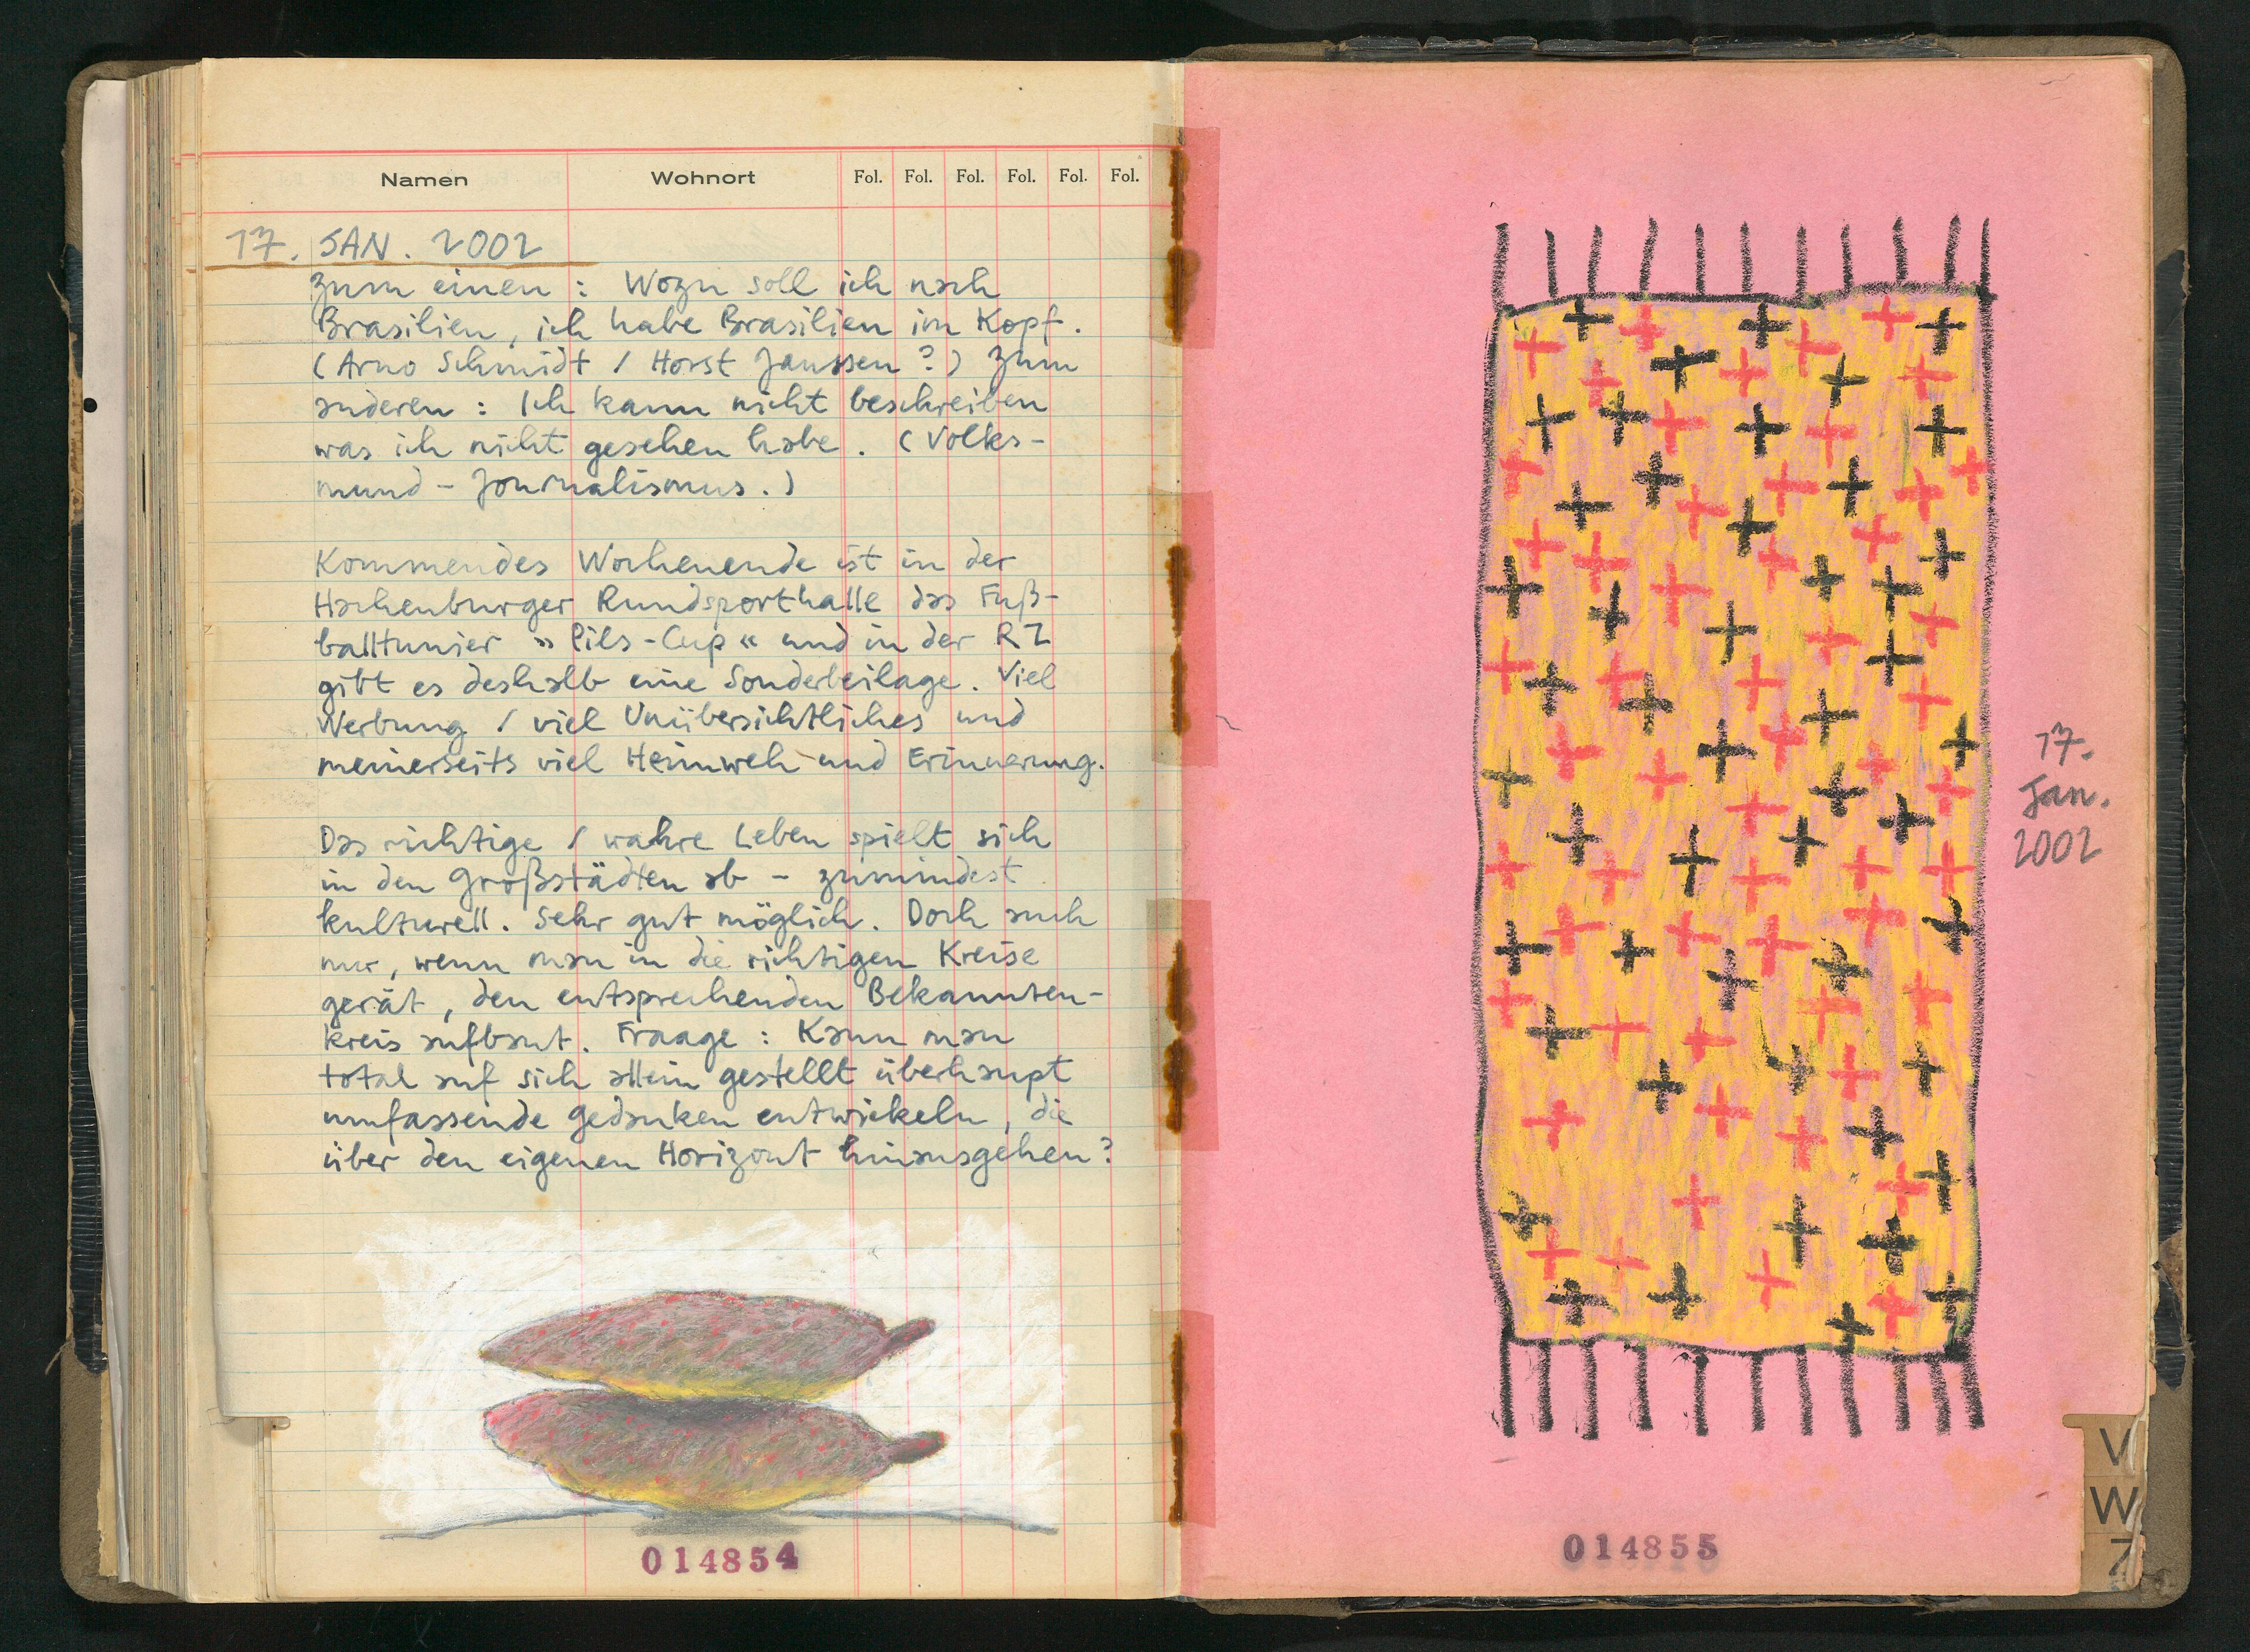 Namen Wohnort Fol. Fol. Fol. Fol. Fol. Fol.
17. JAN. 2002
Zum einen : Wozu soll ich nach
Brasilien, ich habe Brasilien im Kopf.
(Arno Schmidt / Horst Janssen ?) Zum
anderen : Ich kann nicht beschreiben
was ich nicht gesehen habe. (Volks-
mund - Journalismus.)
Kommendes Wochenende ist in der
Hachenburger Rundsporthalle das Fuß-
balltunier »Pils-Cup« und in der RZ
gibt es deshalb eine Sonderbeilage. Viel
Werbung / viel Unübersichtliches und
meinerseits viel Heimweh und Erinnerung.
Das richtige / wahre Leben spielt sich
in den Großstädten ab - zumindest
kulturell. Sehr gut möglich. Doch auch
nur, wenn man in die richtigen Kreise
gerät, den entsprechenden Bekannten-
kreis aufbaut. Fraage : Kann man
total auf sich allein gestellt überhaupt
umfassende Gedanken entwickeln, die
über den eigenen Horizont hinausgehen?
014854
17.
Jan.
2002
014855
V
W
Z